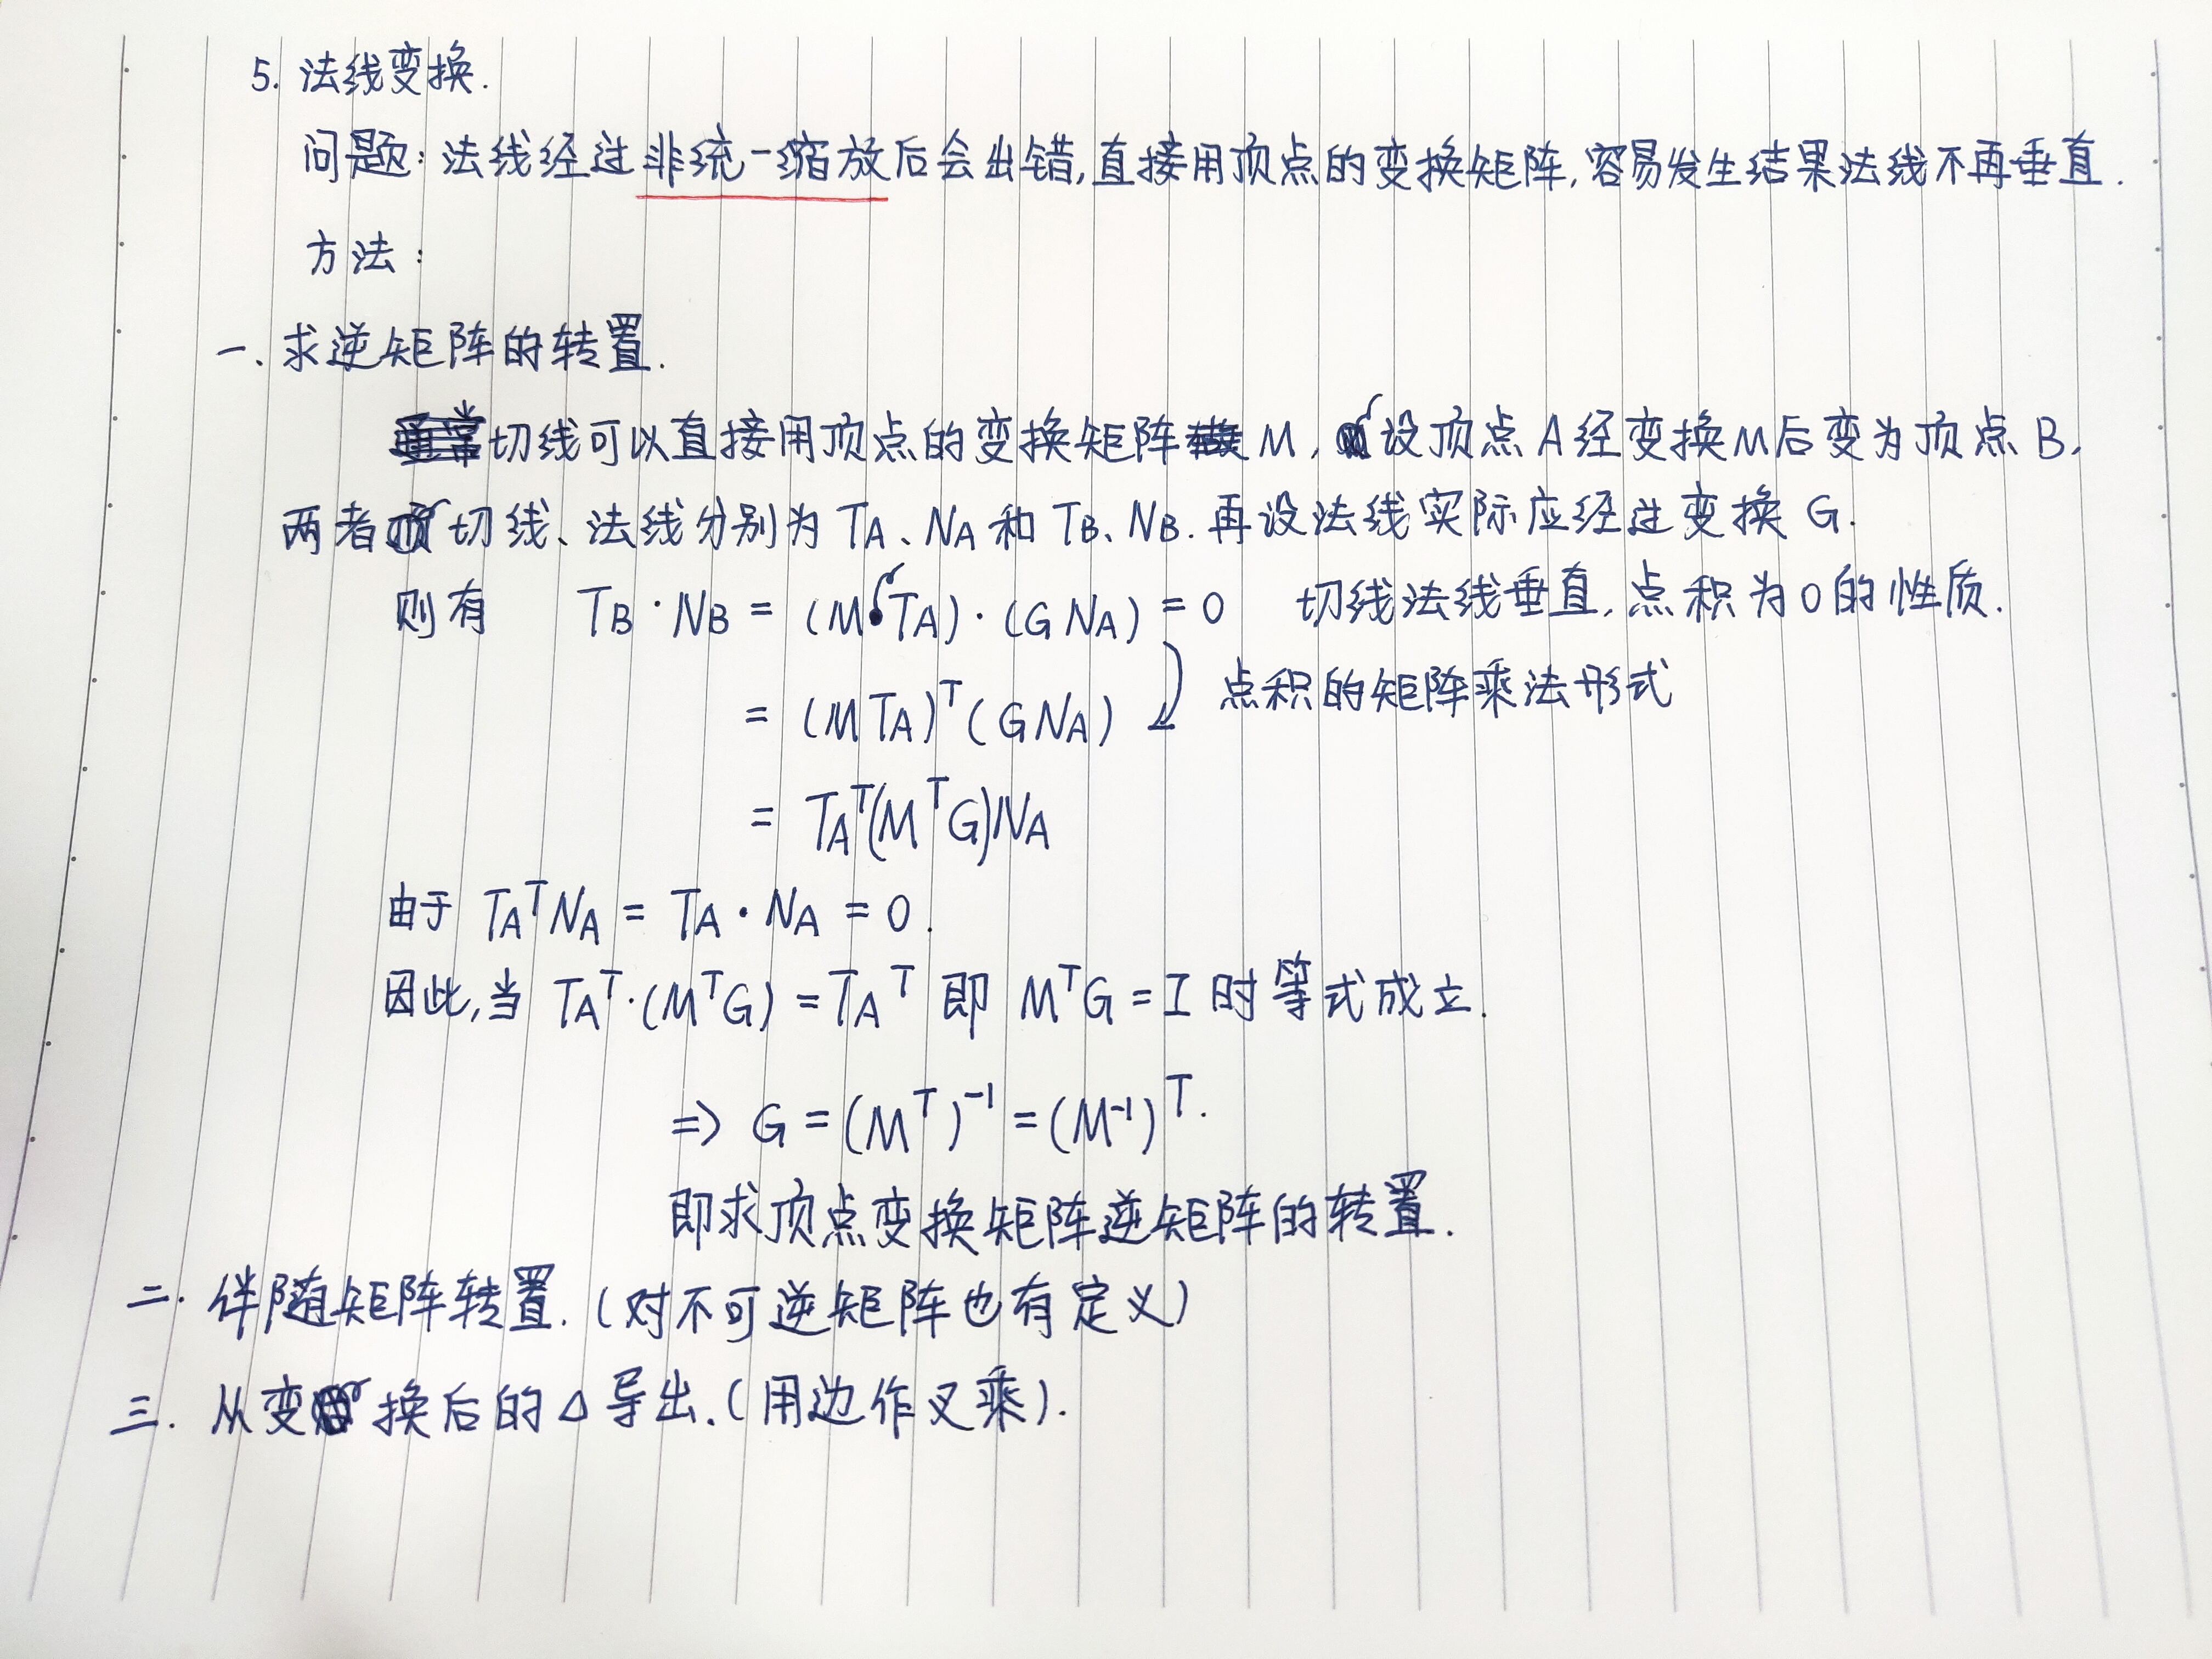 5. 法线变换.
问题: 法线经过非统一缩放后会出错,直接用顶点的变换矩阵,容易发生结果法线不再垂直.
方法:
一、求逆矩阵的转置.
切线可以直接用顶点的变换矩阵M, 设顶点A经变换M后变为顶点B,
两者切线、法线分别为 TA、NA 和 TB、NB. 再设法线实际应经过变换 G.
则有 TB·NB = (M TA)·(G NA) = 0 切线法线垂直,点积为0的性质.
= (M TA)^T (G NA) 点积的矩阵乘法形式
= TA^T (M^T G) NA
由于 TA^T NA = TA · NA = 0.
因此,当 TA^T·(M^T G) = TA^T 即 M^T G = I 时等式成立.
=> G = (M^T)^-1 = (M^-1)^T.
即求顶点变换矩阵逆矩阵的转置.
二. 伴随矩阵转置.(对不可逆矩阵也有定义)
三. 从变换后的△导出.(用边作叉乘).